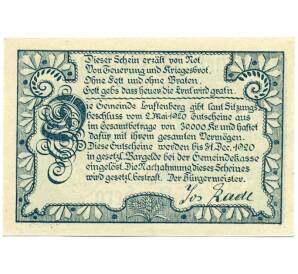 Dieser Schein erzählt von Not
Von Teuerung und Kriegesbrot.
Ohne Fett und ohne Braten.
Gott gebs dass heuer die Ernt wird gratn.
Die Gemeinde Luftenberg gibt laut Sitzungs
beschluss vom 2. Mai 1920 Gutscheine aus
im Gesamtbetrage von 30000 K. und haftet
dafür mit ihrem gesamten Vermögen.
Diese Gutscheine werden bis 31. Dez. 1920
in gesetzl. Bargelde bei der Gemeindekasse
eingelöst. Die Nachahmung dieses Scheines
wird gesetzl. bestraft. Der Bürgermeister.
Jos